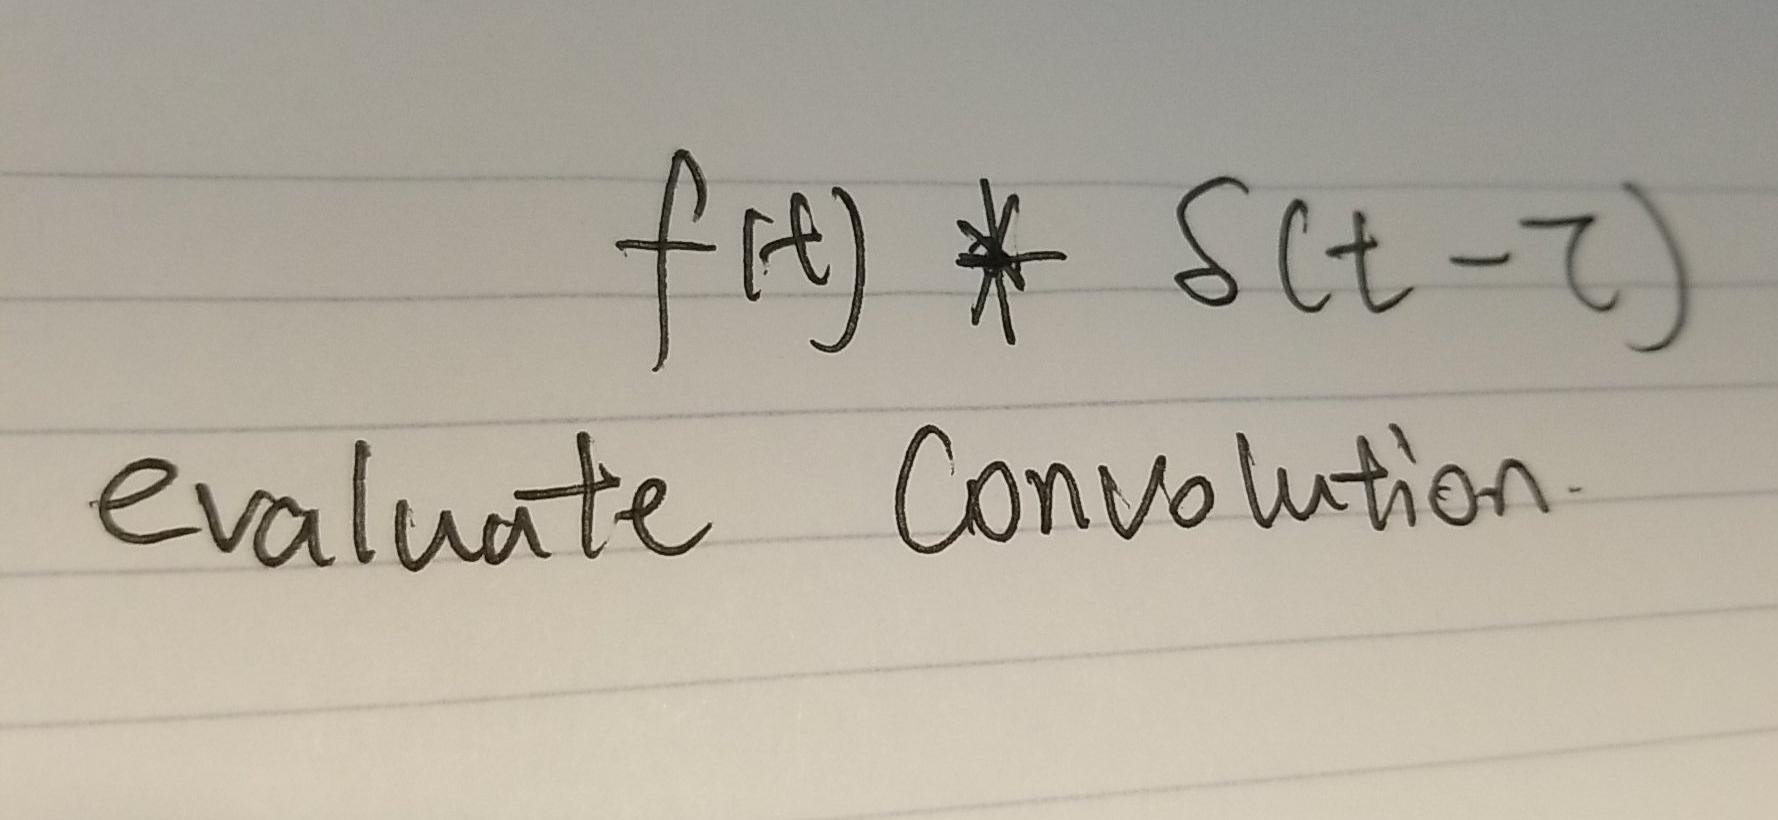 f(t) * δ(t-τ)
evaluate Convolution.